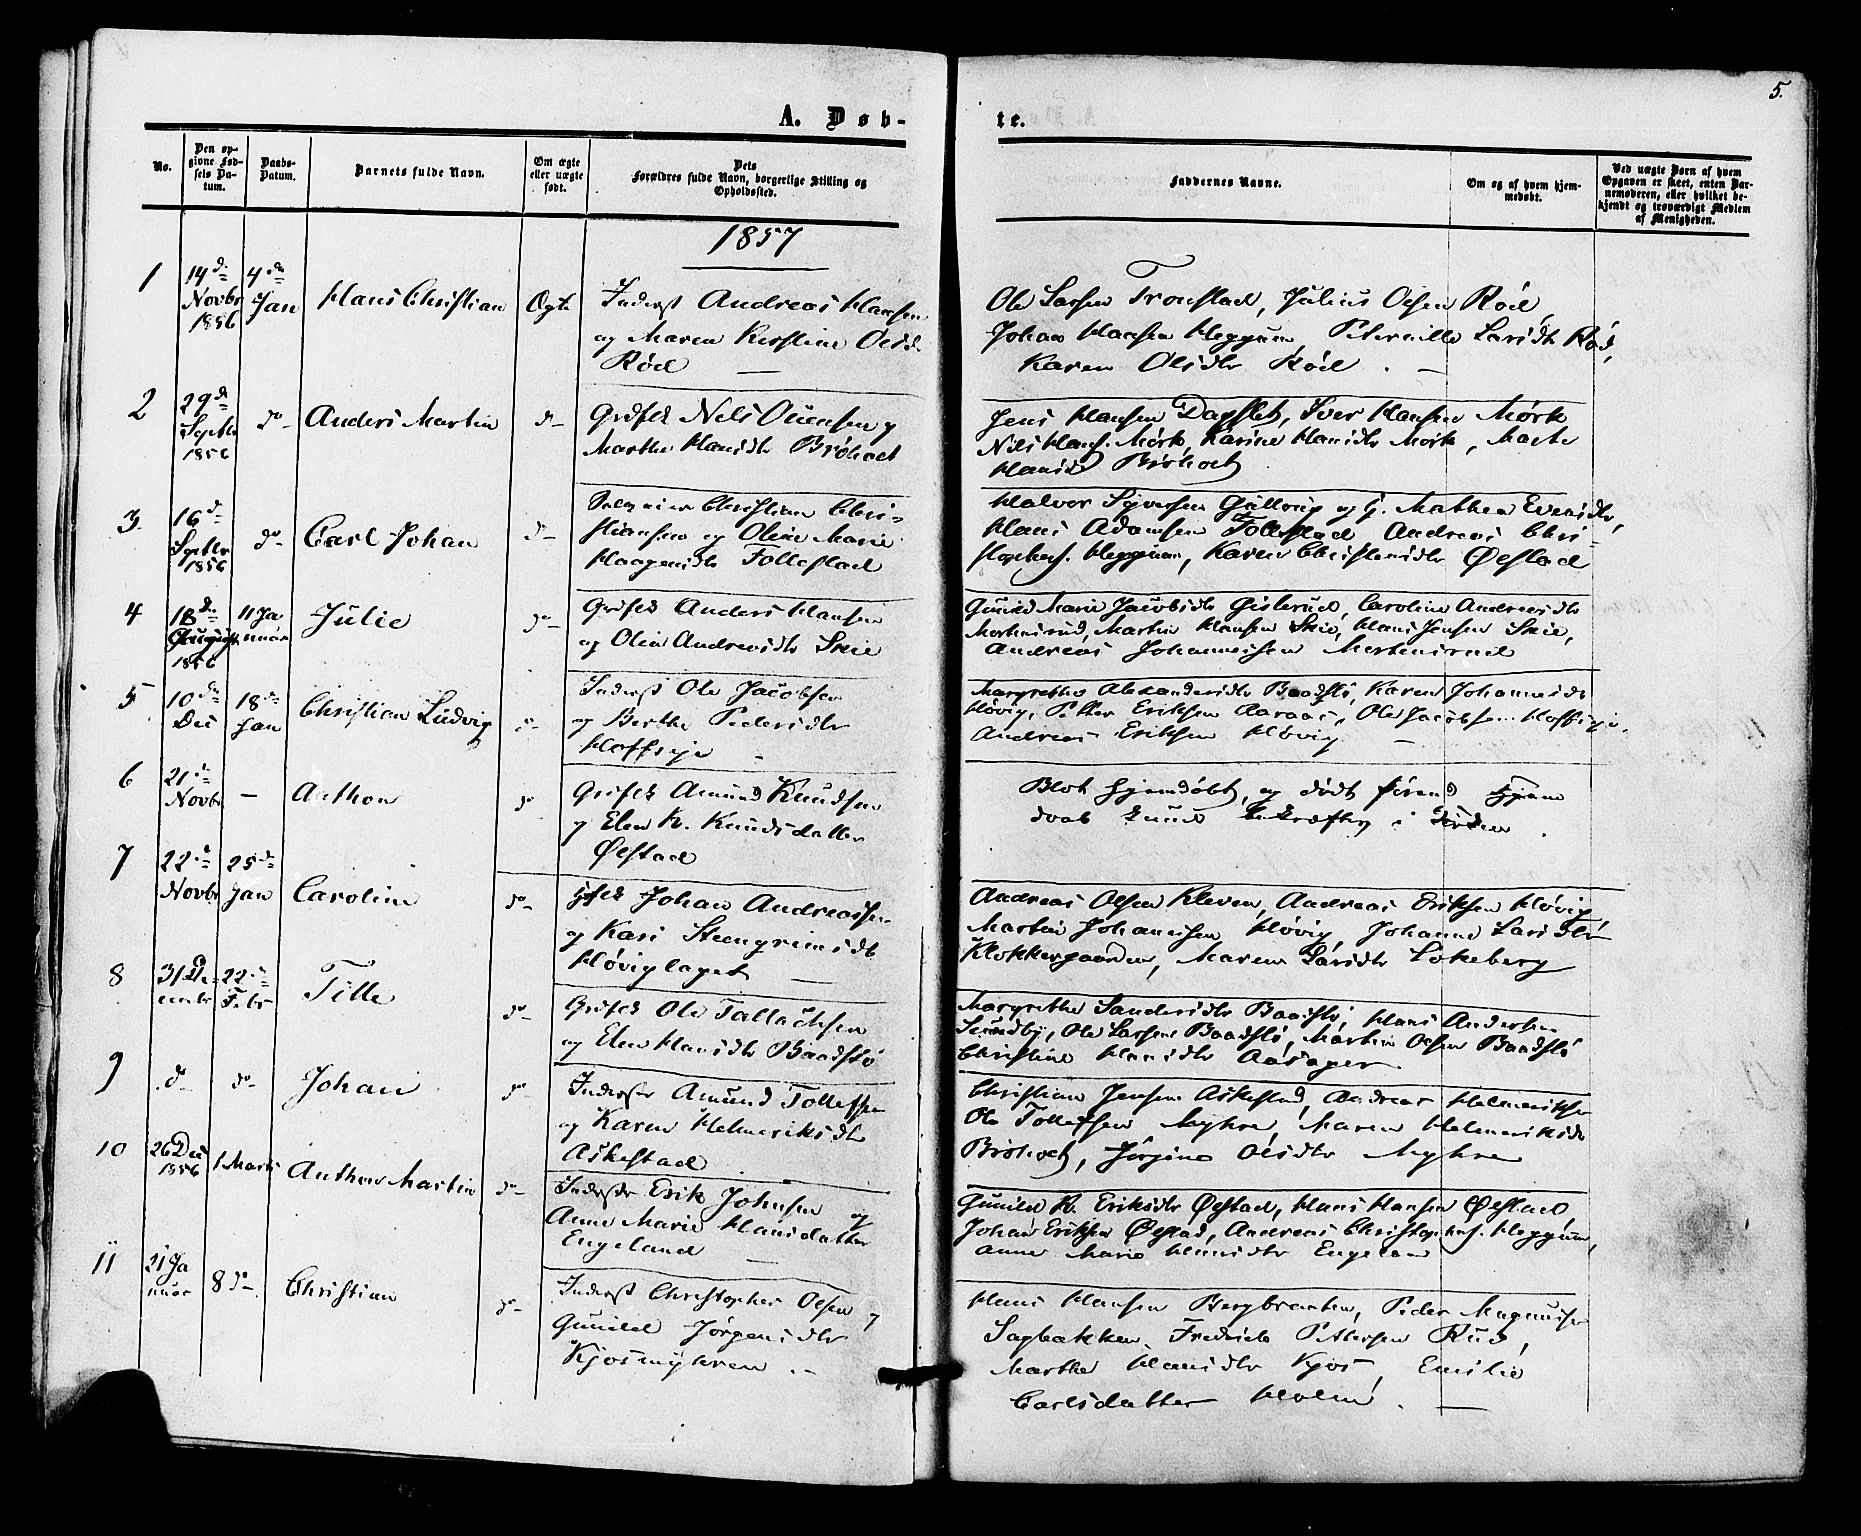 5.
A. Døb-
te.
No.
Den op-
givne Fød-
sels Da-
tum.
Daabs-
Datum.
Barnets fulde Navn.
Om ægte
eller uægte
født.
Dets
Forældres fulde Navn, borgerlige Stilling og
Opholdssted.
Faddernes Navne.
Om og af hvem hjem-
medøbt.
Ved uægte Børn af hvem
Opgaven er skeet, enten Bar-
nemoderen, eller hvilket be-
kjendt og troværdigt Medlem
af Menigheden.
1857
1
14de
Novbr
1856
4de
Jan
Hans Christian
Ægte
Inderst Andreas Hansen
og Maren Kirstine Olsd.
Rød
Ole Larsen Tronstad, Julius Olsen Rød
Johan Hansen Heggum, Peternille Larsdtr Rød,
Karen Olsdtr Rød
2
29de
Septbr
1856
do
Anders Martin
do
Grdfck Nils Ouensen og
Marthe Hansdtr Bråhaet
Jens Hansen Dagslet, Iver Hansen Mørk
Nils Hans. Mørk, Karine Hansdtr Mørk, Marte
Hansd
3
16de
Septbr
1856
do
Carl Johan
do
Christian Chri-
stiansen og Oline Marie
Haagensdtr Follestad
Halvor Syversen Gullaug og G. Mathea Evensdtr,
Hans Adamsen Follestad Andreas Chri-
stophers. Heggum, Karen Christensdtr Øestad
4
18de
August
1856
11 Ja
nuar
Julie
do
Grdfck Anders Hansen
og Olea Andreasdtr Skie
Gunild Marie Jacobsdtr Gisterud, Caroline Andreasdtr
Mortensrud, Martin Hansen Skie, Hans Jensen Skie,
Andreas Johannessen Mortensrud
5
10de
Dec
18de
Jan
Christian Ludvig
do
Inderst Ole Jacobsen
og Berthe Pedersdtr
Haffseje
Margrethe Alexandersdtr Baadstø, Karen Johannesdtr
Høvig, Petter Eriksen Aaraas, Ole Jacobsen Haffseje,
Andreas Eriksen Høvig
6
21de
Novbr
—
Anthon
do
Grdfck Amund Knudsen
og Elen K. Knudsdatter
Øestad
Blot hjemdøbt, og dødt førend Hjem
daab kunde bekræftes i Kirken.
7
22de
Novbr
25de
Jan
Caroline
do
Johan Andreassen
og Kari Steengrimsdtr
Høviglaget
Andreas Olsen Kleven, Andreas Eriksen Høvig
Martin Johannesen Høvig Johanne Larsdtr
Klokkergaarden, Maren Larsdtr Lokeberg
8
31 De
cembr
22de
Febr
Tille
do
Grdfck Ole Tallachsen
og Elen Hansdtr Baadstø
Margrethe Sandersdtr Baadstø, Hans Andersen
Sundby, Ole Larsen Baadstø, Martin Olsen Baadstø
Christine Hansdtr Aasager
9
do
do
Johan
do
Inderster Amund Tollefsen
og Karen Helmeriksdtr
Askestad
Christian Jensen Askestad, Andreas Helmeriksen
Ole Tollefsen Myhre, Maren Helmeriksdtr
Jørgine Olsdtr Myhre
10
26 Dec
1856
1 Marts
Anthon Martin
do
Inderster Erik Johnsen og
Anne Marie Hansdatter
Engeland
Gunild K. Eriksdtr Øestad, Hans Hansen Øestad
Johan Eriksen Øestad, Andreas Christophers. Heggum,
Anne Marie Hansdtr Engeland
11
21 Ja
nuar
8 do
Christian
do
Inderst Christopher Olsen og
Gunild Jørgensdtr
Kjosmyhren
Hans Hansen Bergbraaten, Peder Magnussen
Sagbakken, Fredrik Pettersen Rud,
Marthe Hansdtr Kjos, Emilie
Carlsdatter Holm